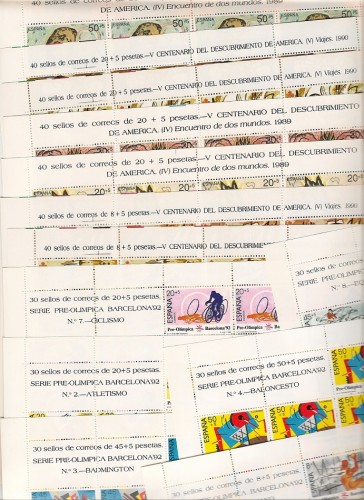 DE AMERICA. (IV) Encuentro de dos mundos. 1989
ESPAÑA 50+5
ESPAÑA 50+5
ESPAÑA 50+5
ESPAÑA 50+5
40 sellos de correos de 20 + 5 pesetas.—V CENTENARIO DEL DESCUBRIMIENTO DE AMERICA. (V) Viajes. 1990
40 sellos de correos de 20 + 5 pesetas.—V CENTENARIO DEL DESCUBRIMIENTO DE AMERICA. (V) Viajes. 1990
40 sellos de correos de 20 + 5 pesetas.—V CENTENARIO DEL DESCUBRIMIENTO
DE AMERICA. (IV) Encuentro de dos mundos. 1989
40 sellos de correos de 20 + 5 pesetas.—V CENTENARIO DEL DESCUBRIMIENTO
DE AMERICA. (IV) Encuentro de dos mundos. 1989
20+5
20+5
20+5
20+5
40 sellos de correos de 8 + 5 pesetas.—V CENTENARIO DEL DESCUBRIMIENTO DE AMERICA. (V) Viajes. 1990
40 sellos de correos de 8 + 5 pesetas.—V CENTENARIO DEL DESCUBRIMIENTO DE AMERICA. (V) Viajes. 1990
30 sellos de correos de
SERIE PRE-OLIMPICA
N.º 8.—
30 sellos de correos de 20+5 pesetas.
SERIE PRE-OLIMPICA BARCELONA'92
N.º 7.—CICLISMO
ESPAÑA 20+5
Pre-Olímpica Barcelona'92
ESPAÑA 20+5
Pre-Olímpica Ba
30 sellos de correos de 20+5 pesetas.
SERIE PRE-OLIMPICA BARCELONA'92
N.º 2.—ATLETISMO
30 sellos de correos de 50+5 pesetas.
SERIE PRE-OLIMPICA BARCELONA'92
N.º 4.—BALONCESTO
ESPAÑA 50+5
ESPAÑA 50+5
ESPAÑA 50+5
30 sellos de correos de 45+5 pesetas.
SERIE PRE-OLIMPICA BARCELONA'92
N.º 3.—BADMINGTON